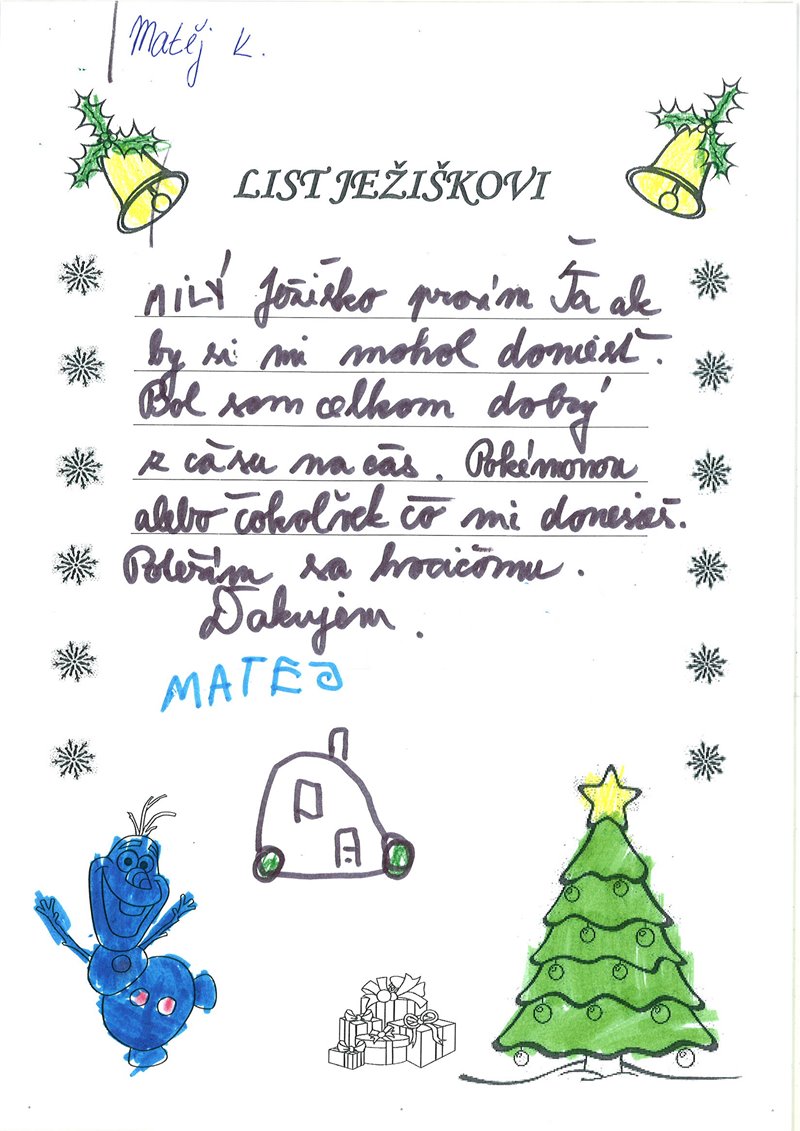 Matěj K.
LIST JEŽIŠKOVI
MILÝ Ježiško prosím Ťa ak
by si mi mohol doniesť.
Bol som celkom dobrý
z času na čas. Pokémonou
alebo čokolviek čo mi donesieš.
Poteším sa hocičomu.
Ďakujem.
MATEJ